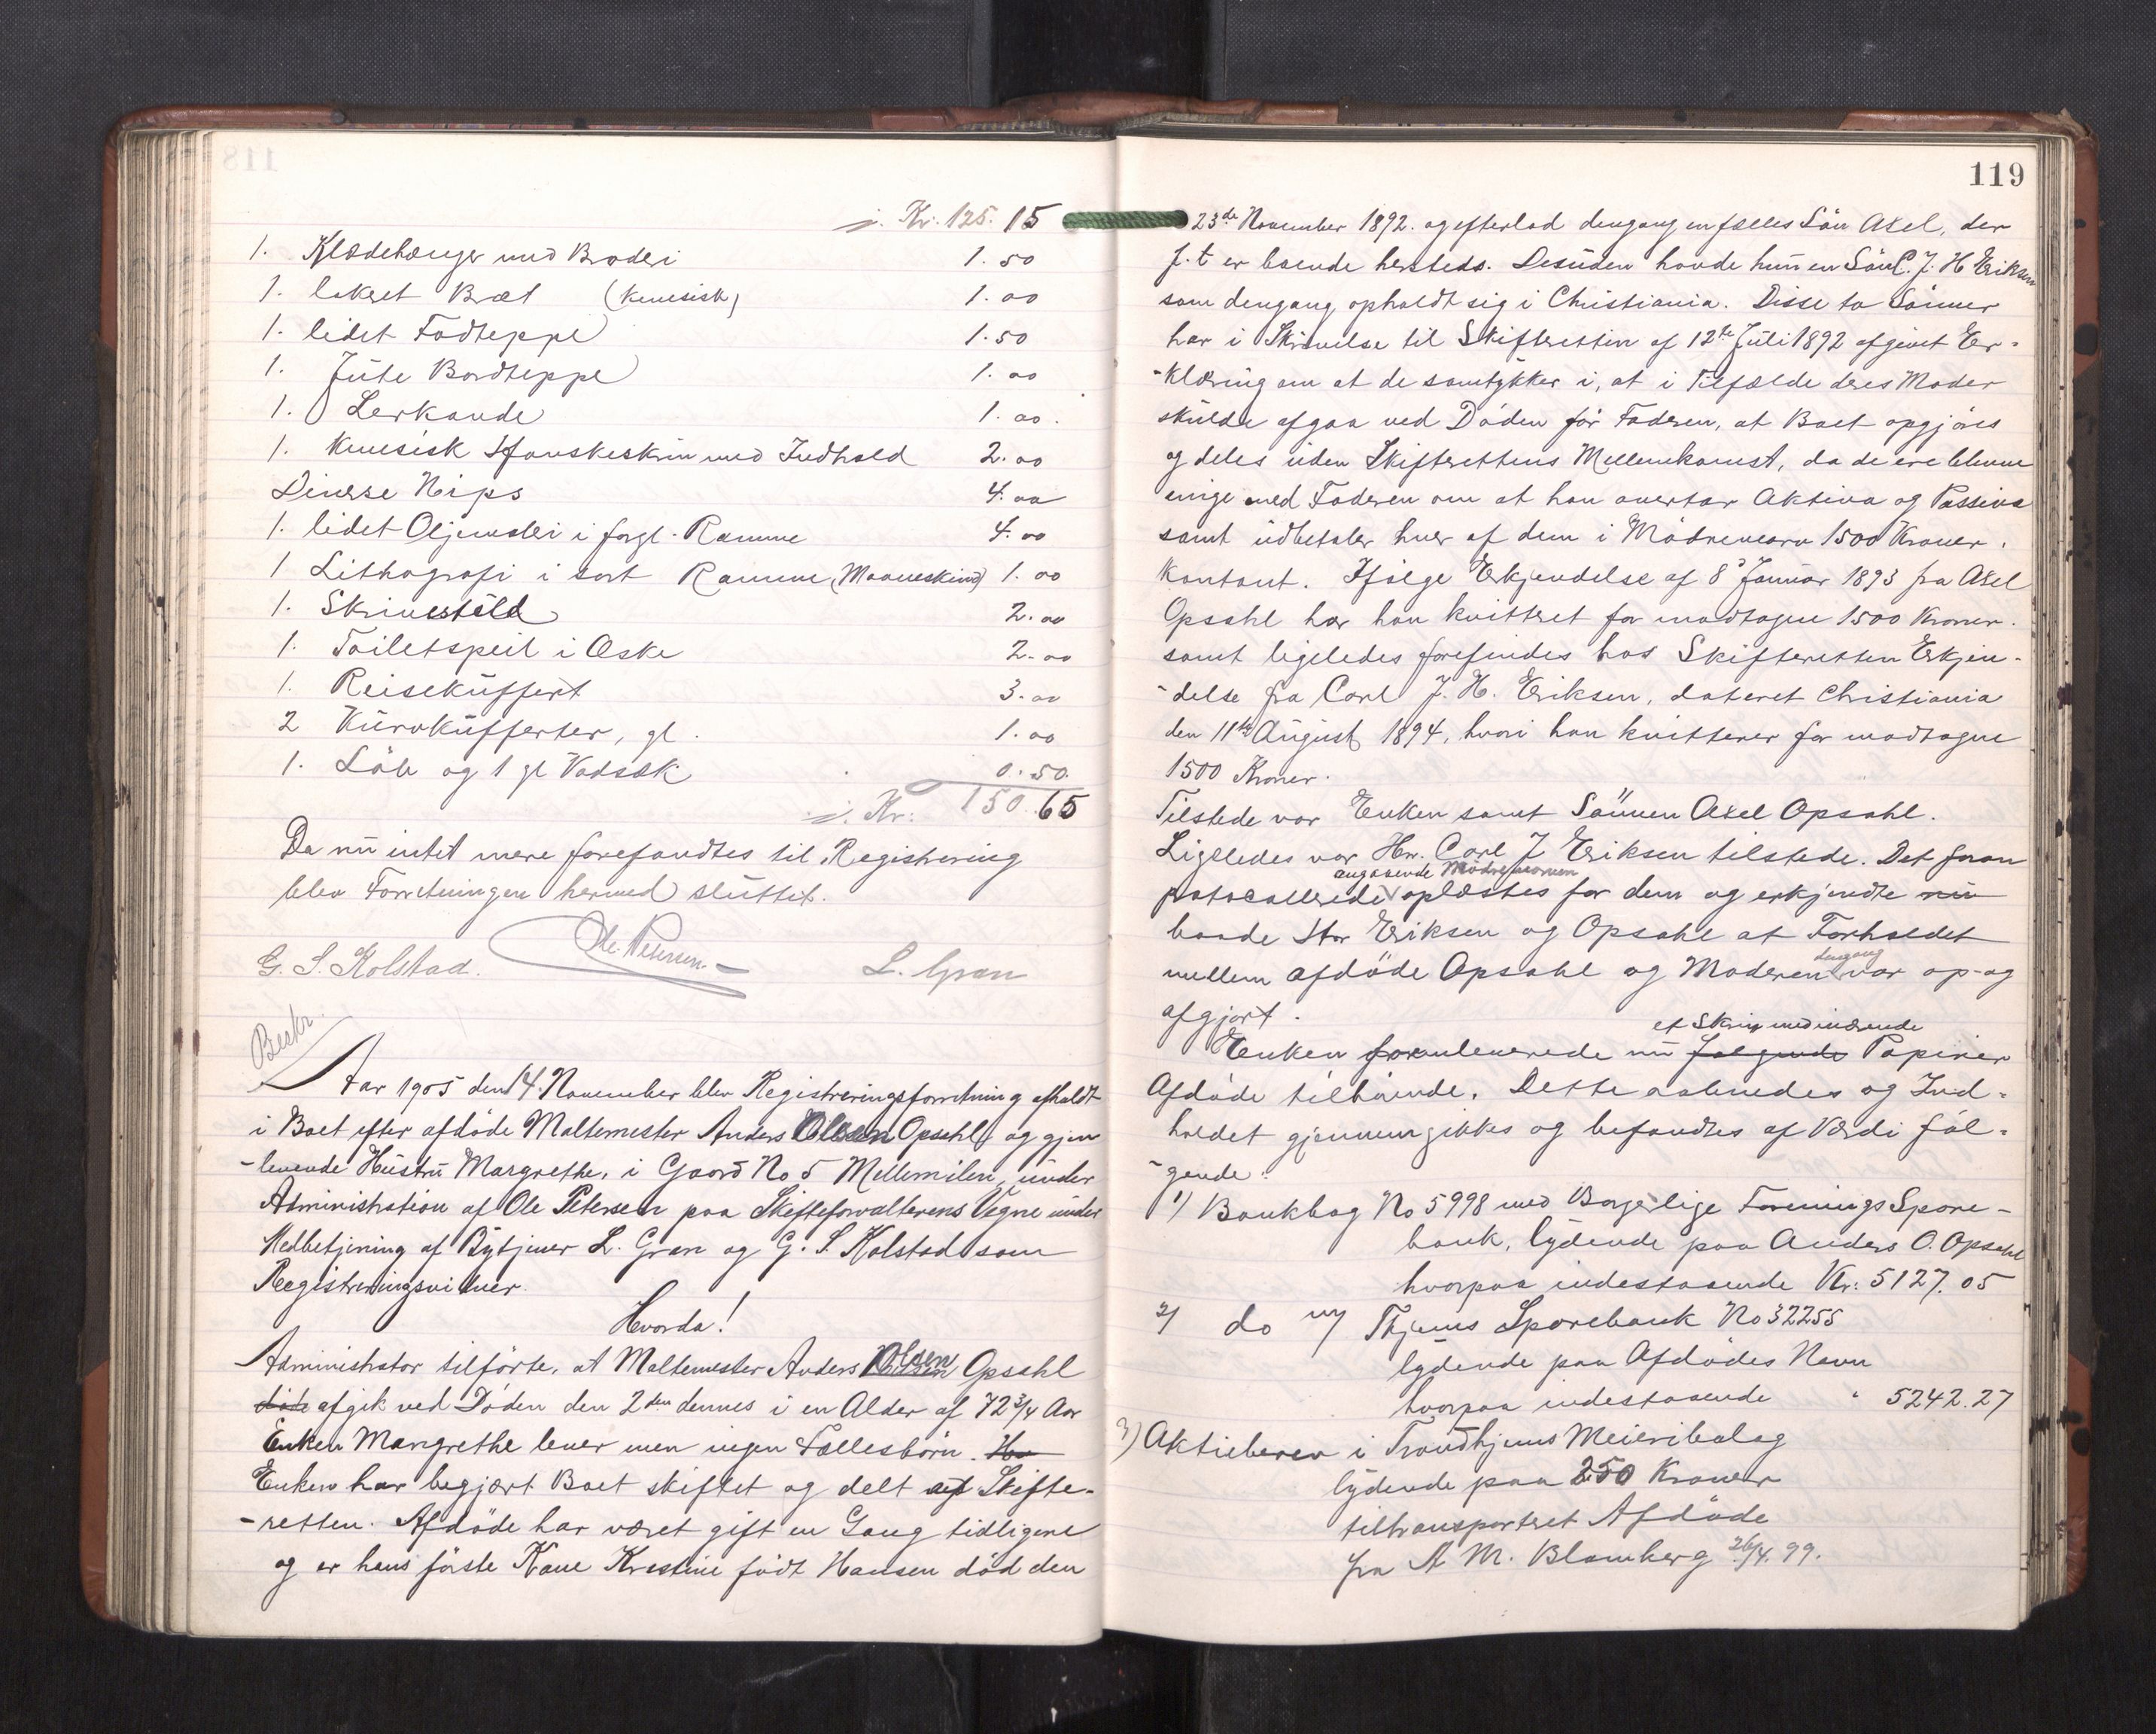 j. Kr. 125. 15
1. Klædehænger med Broderi 1. 50
1. lakeret Bræt (kinesisk) 1. 00
1. lidet Fodteppe 1. 50
1. Jute Bordteppe 1. 00
1. Lerkande 1. 00.
1. kinesisk Handskeskrin med Indhold 2. 00
Diverse Nips 4. 00
1. lidet Oljemaleri i forgl. Ramme 4. 00
1 Lithografi i sort Ramme (Maaneskind) 1. 00
1. Skrivestell 2. 00
1. Toiletspeil i Æske 2. 00
1. Reisekuffert 3. 00
2 Kurvkufferter, gl. 1. 00
1. Lab og 1 gl Vadsæk 0. 50.
j. Kr: 150. 65
Da nu intet mere forefandtes til Registrering
blev Forretningen hermed sluttet.
G. S. Kolstad. Ole Petersen L. Gran
Beskr.
Aar 1905 den 14. November blev Registreringsforretning afholdt
i Boet efter afdöde Maltemester Anders Olsen Opsahl og gjen-
-levende Hustru Margrethe, i Gaard No 5 Mellemilen, under
Administration af Ole Petersen paa Skifteforvalterens Vegne under
Medbetjening af Bytjener L. Gran og G. S. Kolstad som
Registreringsvidner.
Hvorda!
Administrator tilförte, at Maltemester Anders Olsen Opsahl
döde afgik ved Döden den 2den dennes i en Alder af 72 3/4 Aar
Enken Margrethe lever men ingen Fællesbörn. Ha
Enken har begjært Boet skiftet og delt af Skifte-
-retten. Afdöde har været gift en Gang tidligere
og er hans förste Kone Kristine födt Hansen död den
119
23de November 1892. og efterlod dengang en fælles Sön Axel, der
f. t er boende hersteds. Desuden havde hun en Sön C. J. H Eriksen
som dengang opholdt sig i Christiania. Disse to Sönner
har i Skrivelse til Skifteretten af 12te Juli 1892 afgivet Er-
-klæring om at de samtykker i, at i Tilfælde deres Moder
skulde afgaa ved Döden för Faderen, at Boet opgjöres
og deles uden Skifterettens Mellemkomst, da de ere blevne
enige med Faderen om at han overtar Aktiva og Passiva
samt udbetaler hver af dem i Mödrenearv 1500 Kroner.
Kontant. Ifölge Erkjendelse af 8' Januar 1893 fra Axel
Opsahl har han kvitteret for modtagne 1500 Kroner.
samt ligeledes forefindes hos Skifteretten Erkjen-
-delse fra Carl J. H. Eriksen, dateret Christiania
den 11te August 1894, hvori han kvitterer for modtagne
1500 Kroner.
Tilstede var Enken samt Sönnen Axel Opsahl.
Ligeledes var Hr. Carl J Eriksen tilstede. Det foran
angaaende Mödrenearven
protocollerede oplæstes for dem og erkjendte nu
baade Hr Eriksen og Opsahl at Forholdet
mellem afdöde Opsahl og Moderen dengang var op- og
afgjort.
et Skrin med værende
Enken fremleverede nu følgende Papirer
Afdöde tilhörende. Dette aabnedes og Ind-
holdet gjennemgikkes og befandtes af Værdi föl-
-gende:
1) Bankbog No 5998 med Borgerlige Forenings Spare-
bank, lydende paa Anders O. Opsahl
hvorpaa indestaaende Kr: 5127. 05
2) do m/ Thjems Sparebank No 32255
lydende paa Afdödes Navn
hvorpaa indestaaende " 5242. 27
3) Aktiebrev i Trondhjems Meieribolag
lydende paa 250 Kroner
tiltransporteret Afdöde
fra A M. Blomberg 26/4. 99.